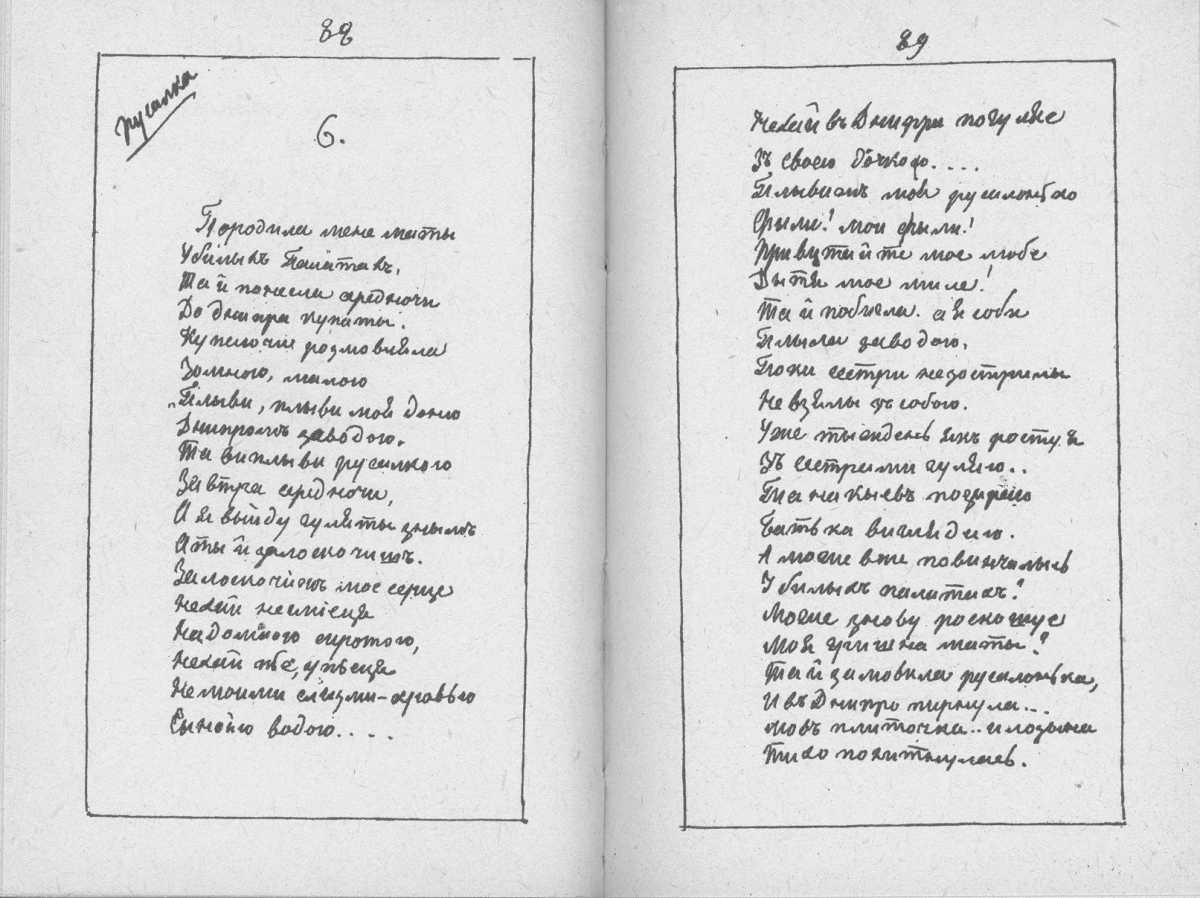 88
Русалка
6.
Породила мене маты
У билыхъ палатахъ,
Та й понесла середночи
До днипра купаты.
Купаючи розмовляла
Зомною, малою
„Плыви, плыви моя доню
Днипромъ заводою.
Та виплыви русалкою
Завтра середночи,
А я выйду гуляты знымъ
А ты й залоскочишъ.
Залоскочишъ мое серце
Нехай не сміеця
Надомною сиротою,
Нехай пъе, упъеця
Не моими слизми-кровъю
Сыньою водою....
89
Нехай въ Днипри погуляе
Зъ своею дочкою....
Плывишъ моя русалонько
Хвыли! мои хвыли!
Привитайте мое любе
Дытя мое миле!
Та й побигла. а я соби
Плыла заводою,
Поки сестри незострилы
Не взялы зъ собою.
Уже тыждень якъ росту я
Зъ сестрами гуляю..
Та на кыевъ позираю
Батька виглядаю.
А може вже повинчалысь
У билыхъ палатахъ?
Може знову роскошуе
Моя гришна маты?
Та й замовкла русалонька,
И въ Днипро пирнула...
Мовъ плиточка.. и лозына
Тихо похитнулась.